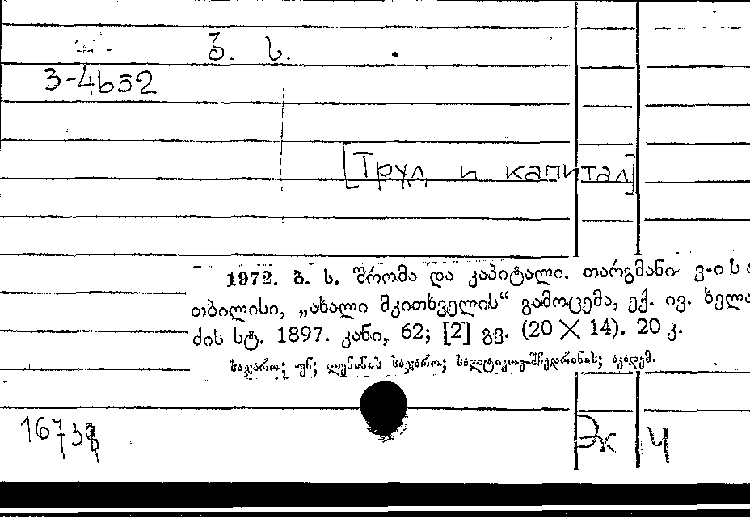 ბ. ს.
3-4652
[Труд и капитал]
1972. ბ. ს. შრომა და კაპიტალი. თარგმანი ვ-ისა
თბილისი, „ახალი მკითხველის“ გამოცემა, ექ. ივ. ხელა
ძის სტ. 1897. კანი, 62; [2] გვ. (20 X 14). 20 კ.
საჯარო; უნ; ლენინის საჯარო;
16738
Эк Ч